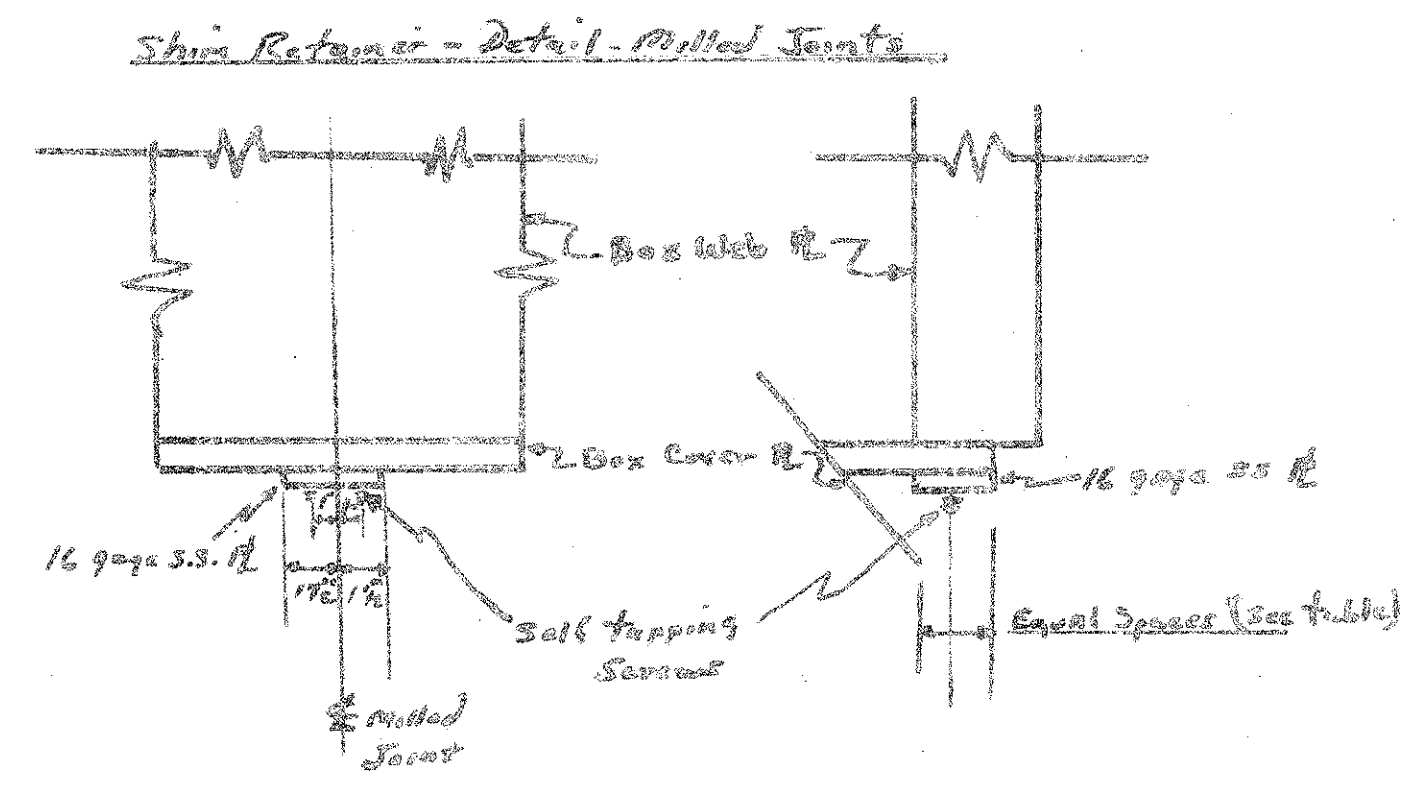 Shim Retainer - Detail - Milled Joints
Box Web PL
Box Cover PL
16 gage SS PL
16 gage S.S. PL
1" 1"
1½" 1½"
Self tapping
Screws
Equal Spaces (See table)
CL Milled
Joint